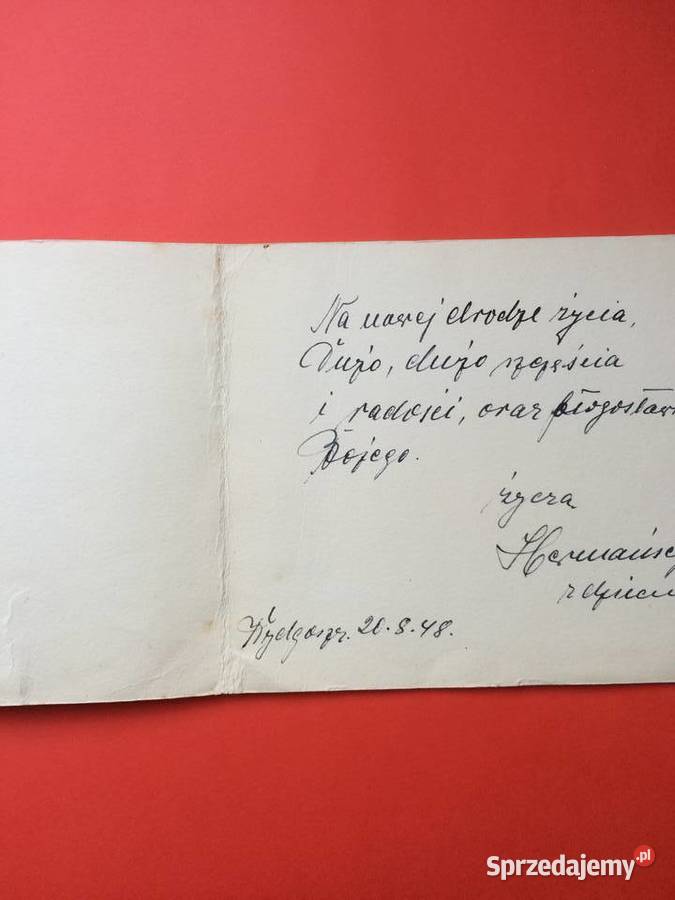 Na nowej drodze życia,
Dużo, dużo szczęścia
i radości, oraz błogosław
Bożego.
życzą
Hermańscy
Bydgoszcz. 20.8.48.
Sprzedajemy.pl